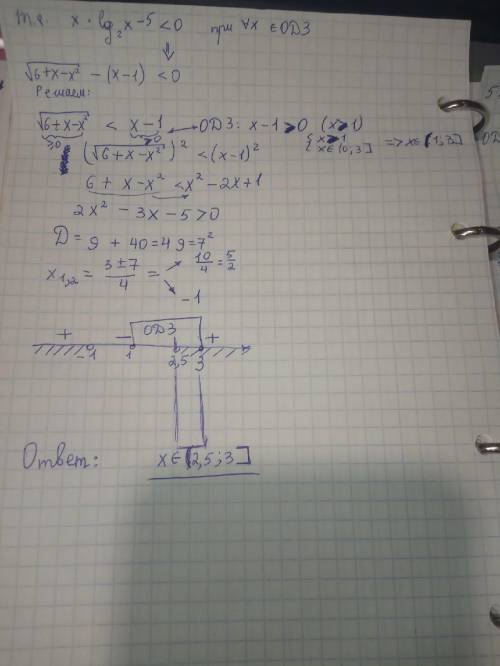 т.к. x · lg₂x - 5 < 0 при ∀x ∈ ОДЗ
⇓
√(6+x-x²) - (x-1) < 0
Решаем:
√(6+x-x²) < x-1 ОДЗ: x-1 ≥ 0 (x ≥ 1)
≥0 ≥0 { x ≥ 1
x ∈ (0;3] => x ∈ [1;3]
(√(6+x-x²))² < (x-1)²
6 + x - x² < x² - 2x + 1
2x² - 3x - 5 > 0
D = 9 + 40 = 49 = 7²
x₁,₂ = (3 ± 7)/4 = 10/4 = 5/2
-1
+ - ОДЗ +
-1 1 2,5 3
Ответ: x ∈ (2,5; 3]